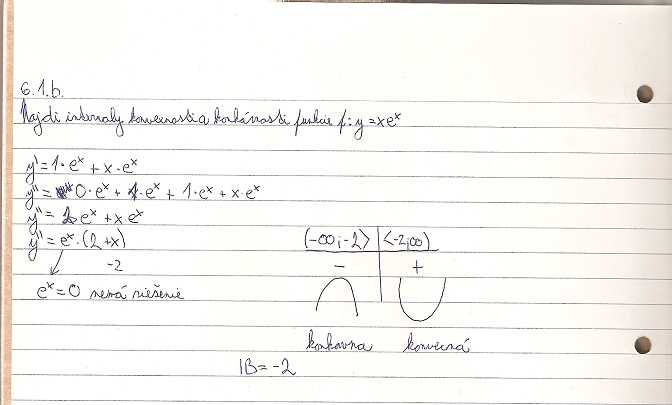 6.1.b.
Nájdi intervaly konvexnosti a konkávnosti funkcie f: y = xeˣ
y' = 1·eˣ + x·eˣ
y'' = 0·eˣ + 1·eˣ + 1·eˣ + x·eˣ
y'' = 2eˣ + xeˣ
y'' = eˣ·(2+x)
-2
eˣ = 0 nemá riešenie
(-∞;-2⟩ ⟨-2;∞)
- +
konkávna konvexná
IB = -2